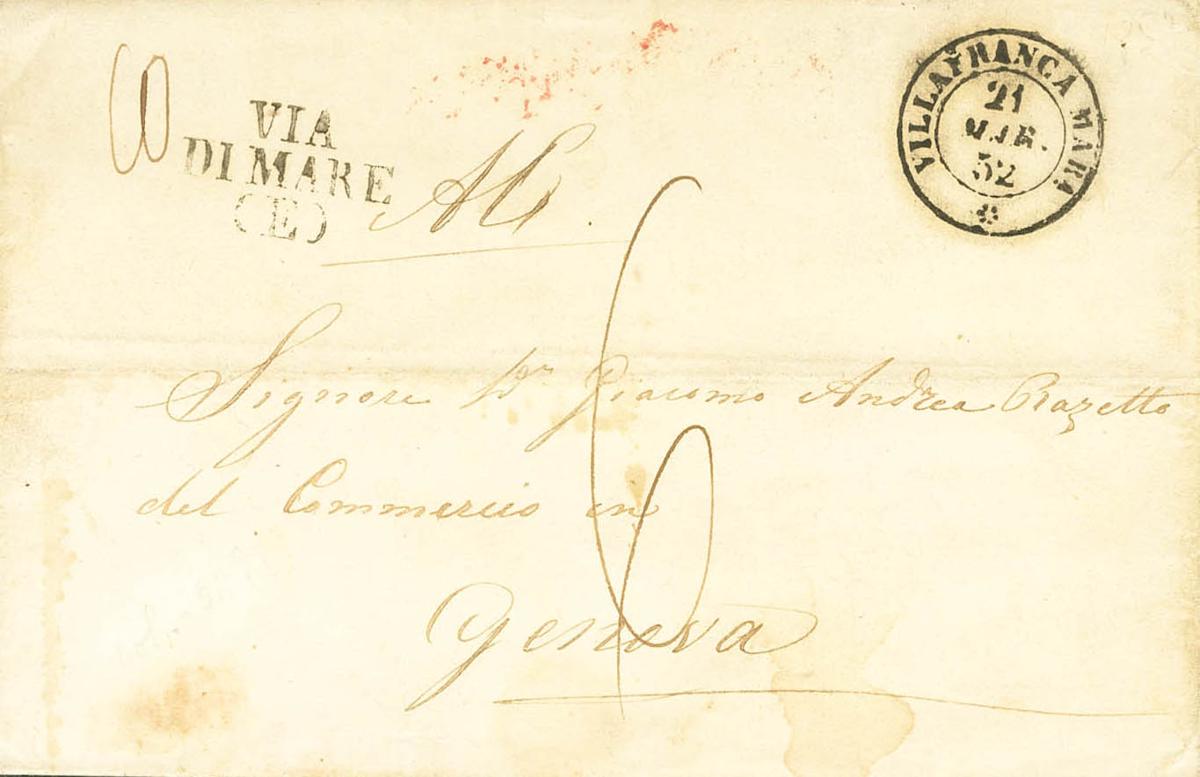 VILLAFRANCA MARA
21
MAR.
52
VIA
DI MARE
(E)
Al
Signore Pr Giacomo Andrea Razetto
del Commercio in
Genova
6